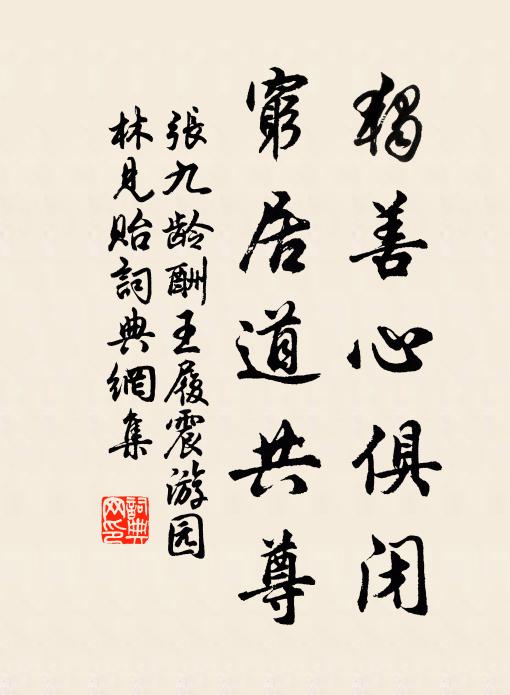 獨善心俱闭
窮居道共尊
張九龄酬王履震游园
林見貽詞典網集
詞典
网印